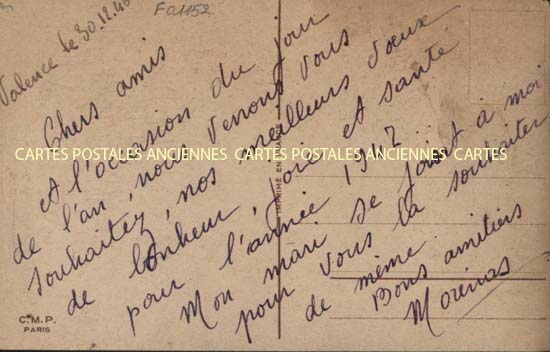 Valence le 30.12.40
F01152
Chers amis
et l'occasion du jour
de l'an, nous venons vous
souhaitez, nos meilleurs vœux
de bonheur, joie et santé
pour l'année 1942
Mon mari se joint a moi
pour vous la souhaiter
de même
Bons amitiers
Morenas
CARTES POSTALES ANCIENNES CARTES POSTALES ANCIENNES CARTES
C.M.P.
PARIS